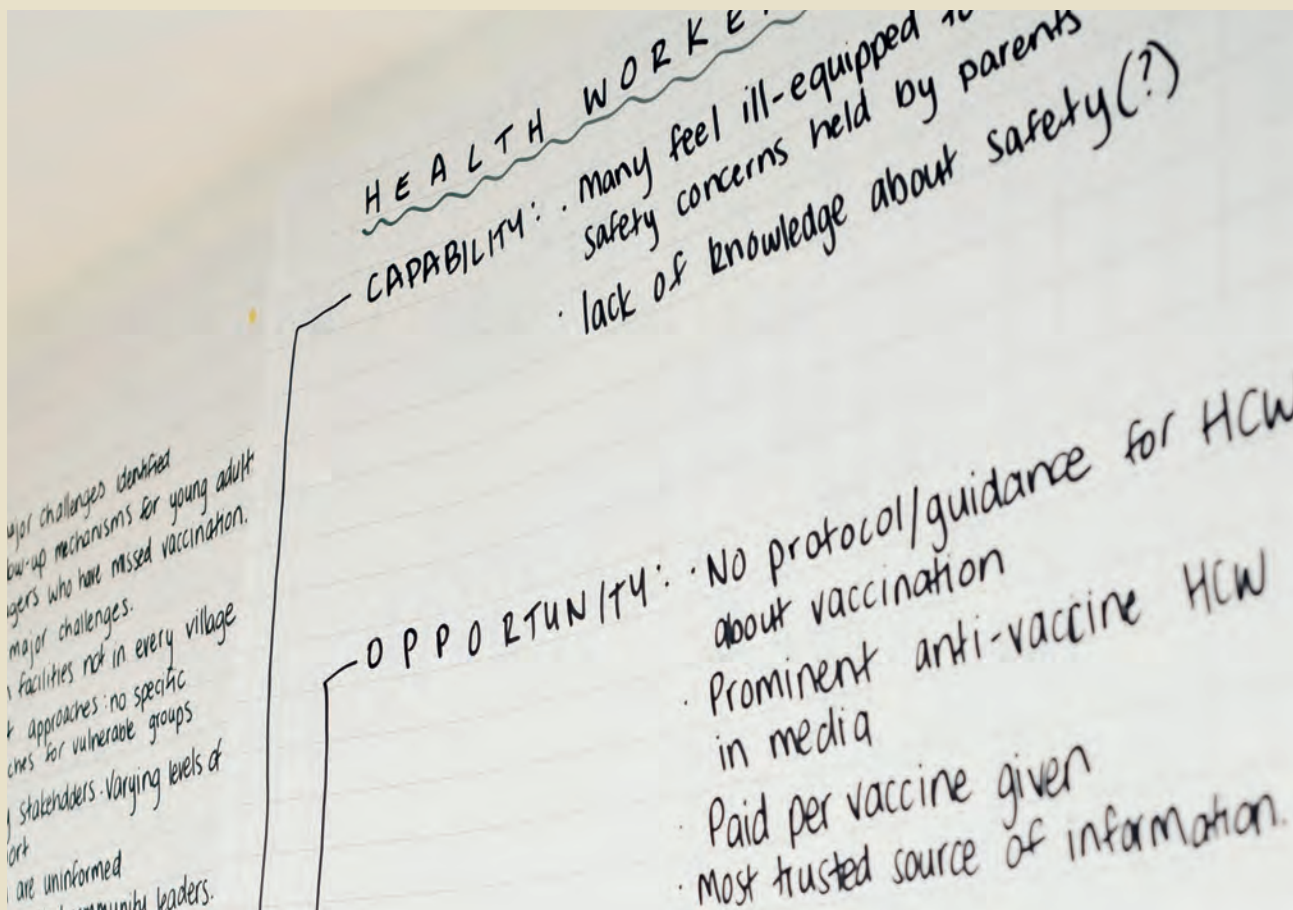 HEALTH WORKE
CAPABILITY: · Many feel ill-equipped
safety concerns held by parents
· lack of knowledge about safety(?)
OPPORTUNITY: · No protocol/guidance for HCW
about vaccination
· Prominent anti-vaccine HCW
in media
· Paid per vaccine given
· Most trusted source of information.
challenges identified
mechanisms for young adult
who have missed vaccination.
major challenges.
facilities not in every village
approaches: no specific
for vulnerable groups
stakeholders. Varying levels of
are uninformed
leaders.